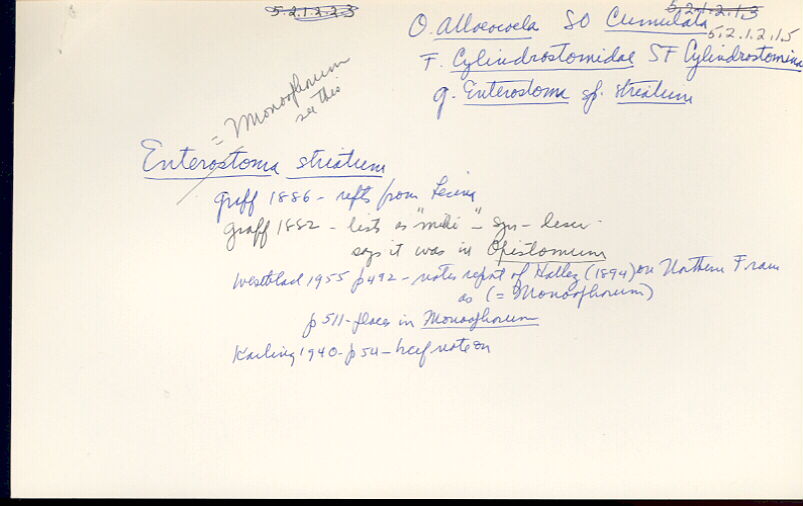 5.2.1.2.2.3
5.2.1.2.1.3
O. Alloeocoela SO Cumulata
5.2.1.2.1.5
F. Cylindrostomidae SF Cylindrostomina
g. Enterostoma sp. striatum
= Monoophorum
see this
Enterostoma striatum
Graff 1886 - refts from Lesina
Graff 1882 - lists as "mihi" - syn - lesur
says it was in Opistomum
Westblad 1955 p492 - notes report of Hallez (1894) on Northern Fran
as (= Monoophorum)
p 511 - places in Monoophorum
Karling 1940 - p 54 - brief note on